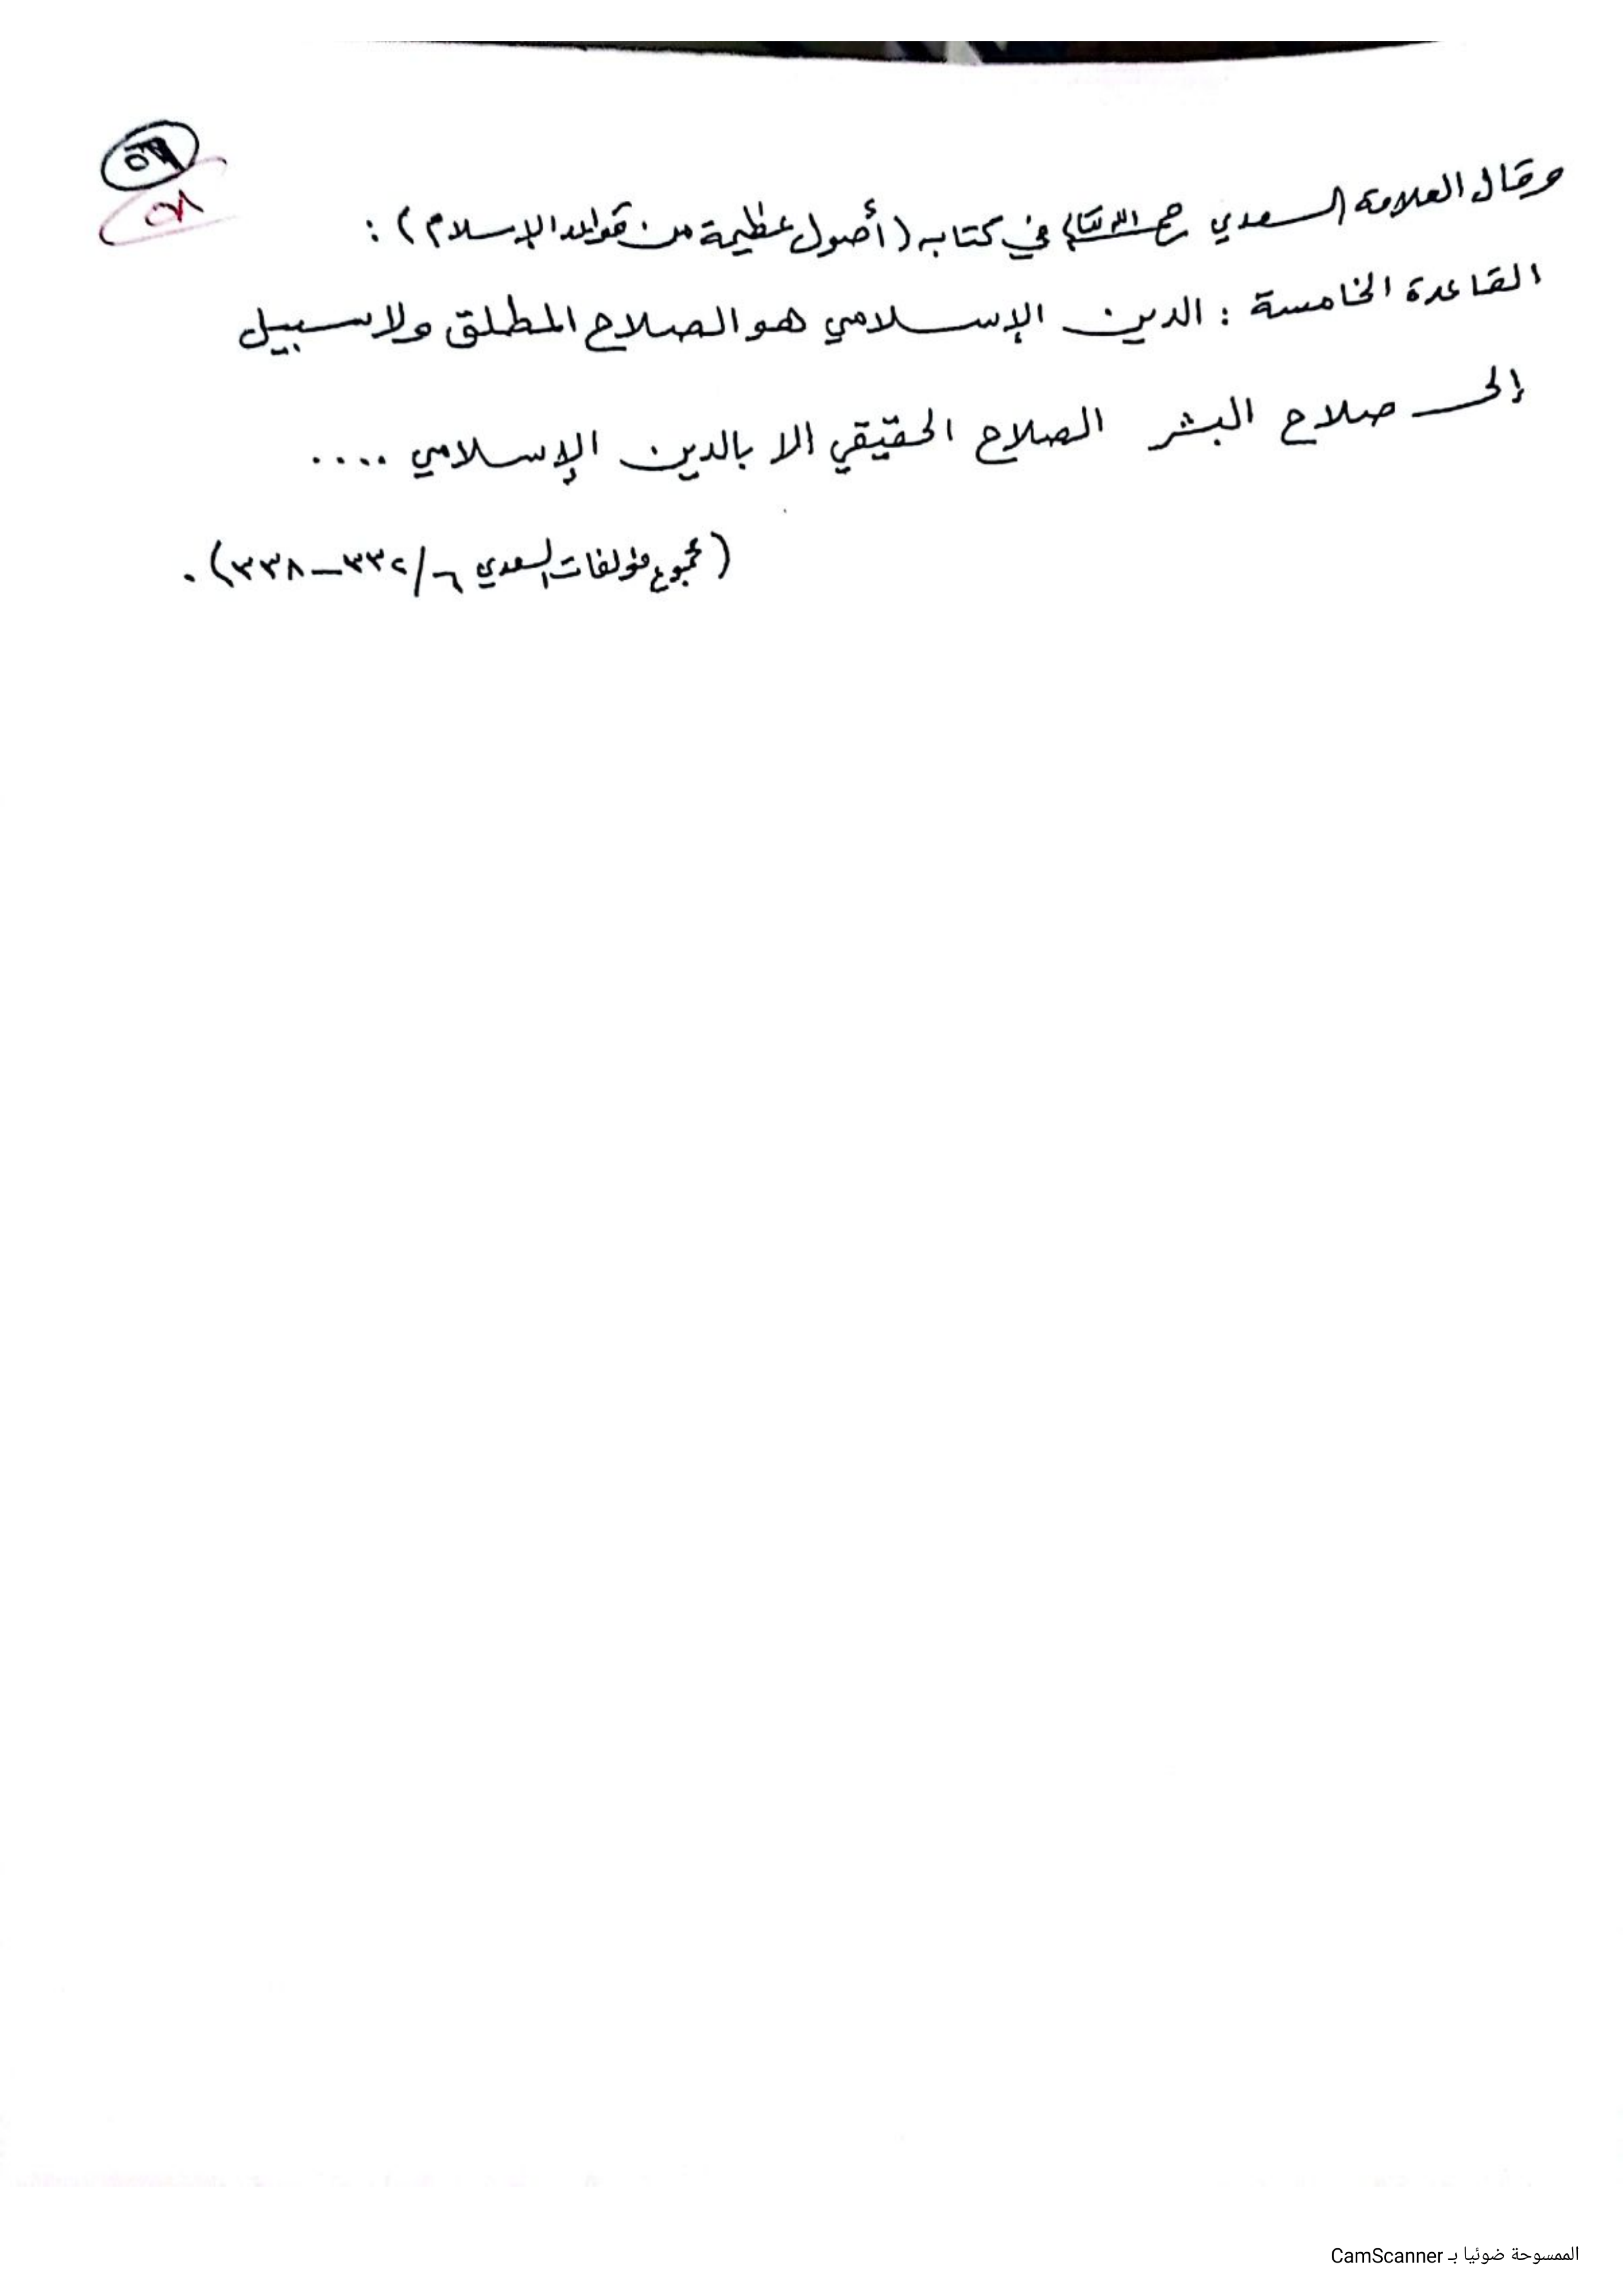 ٥٨
وقال العلامة السعدي رحمه الله تعالى في كتابه (أصول عظيمة من قواعد الإسلام) :
القاعدة الخامسة : الدين الإسلامي هو الصلاح المطلق ولا سبيل
إلى صلاح البشر الصلاح الحقيقي إلا بالدين الإسلامي ....
(مجموع مؤلفات السعدي ٦/٣٣٢-٣٣٨) .
الممسوحة ضوئيا بـ CamScanner